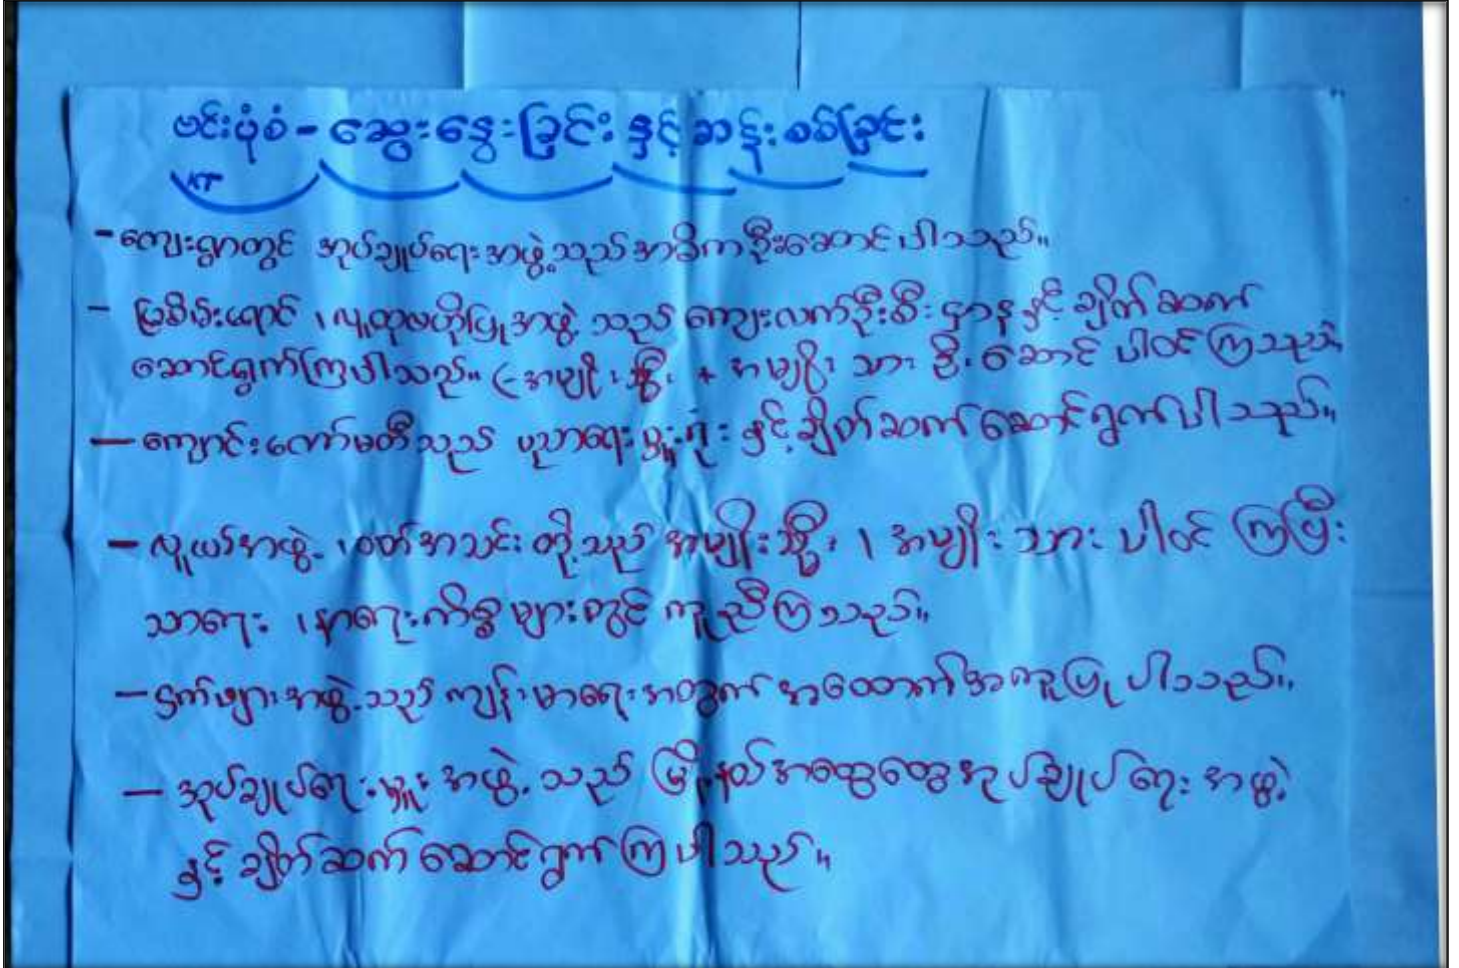 ဗင်းပုံစံ - ဆွေးနွေးခြင်း နှင့် ဆန်းစစ်ခြင်း
KT
- ကျေးရွာတွင် အုပ်ချုပ်ရေးအဖွဲ့သည် အဓိကဦးဆောင်ပါသည်။
- မြစိမ်းရောင် ၊ လူထုဗဟိုပြုအဖွဲ့ သည် ကျေးလက်ဦးစီး ဌာန နှင့် ချိတ်ဆက်
ဆောင်ရွက်ကြပါသည်။ (- အမျိုးသမီး + အမျိုးသား ဦးဆောင် ပါဝင်ကြသည်။
- ကျောင်းကော်မတီသည် ပညာရေးမှူးရုံး နှင့် ချိတ်ဆက်ဆောင်ရွက်ပါသည်။
- လူငယ်အဖွဲ့ ၊ ဝတ်အသင်း တို့သည် အမျိုးသမီး ၊ အမျိုးသား ပါဝင်ကြပြီး
သာရေး ၊ နာရေးကိစ္စများတွင် ကူညီကြသည်။
- ငှက်ဖျားအဖွဲ့သည် ကျန်းမာရေးအတွက် အထောက်အကူပြုပါသည်။
- အုပ်ချုပ်ရေးမှူးအဖွဲ့ သည် မြို့နယ်အထွေထွေအုပ်ချုပ်ရေး အဖွဲ့
နှင့် ချိတ်ဆက် ဆောင်ရွက်ကြပါသည်။